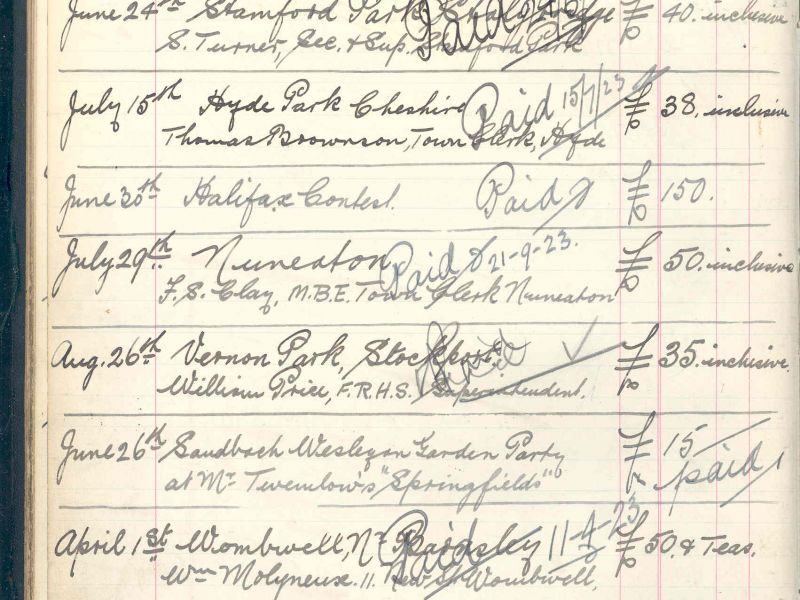 June 24th Stamford Park, Stalybridge Paid £40. inclusive
S. Turner, Sec. & Sup. Stamford Park
July 15th Hyde Park Cheshire Paid 15/7/23 £38. inclusive
Thomas Brownson, Town Clerk, Hyde
June 30th Halifax Contest. Paid £150.
July 29th Nuneaton Paid 21-9-23. £50. inclusive
F. S. Clay, M.B.E. Town Clerk Nuneaton
Aug. 26th Vernon Park, Stockport Paid £35. inclusive.
William Price, F.R.H.S. Superintendent.
June 26th Sandbach Wesleyan Garden Party £15
at Mr Twemlow's "Springfields" paid
April 1st Wombwell, Nr Barnsley Paid 11-4-23 £50. & Teas.
Wm Molyneux. 11. New St Wombwell.